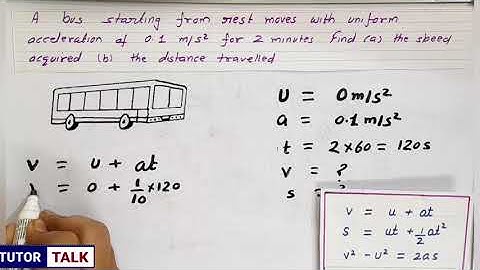 A bus starting from rest moves with uniform
acceleration of 0.1 m/s² for 2 minutes Find (a) the speed
acquired (b) the distance travelled
U = 0m/s²
a = 0.1m/s²
t = 2×60 = 120s
v = ?
s = ?
v = u + at
= 0 + 1/10 ×120
v = u + at
s = ut + 1/2 at²
v² - u² = 2as
TUTOR TALK